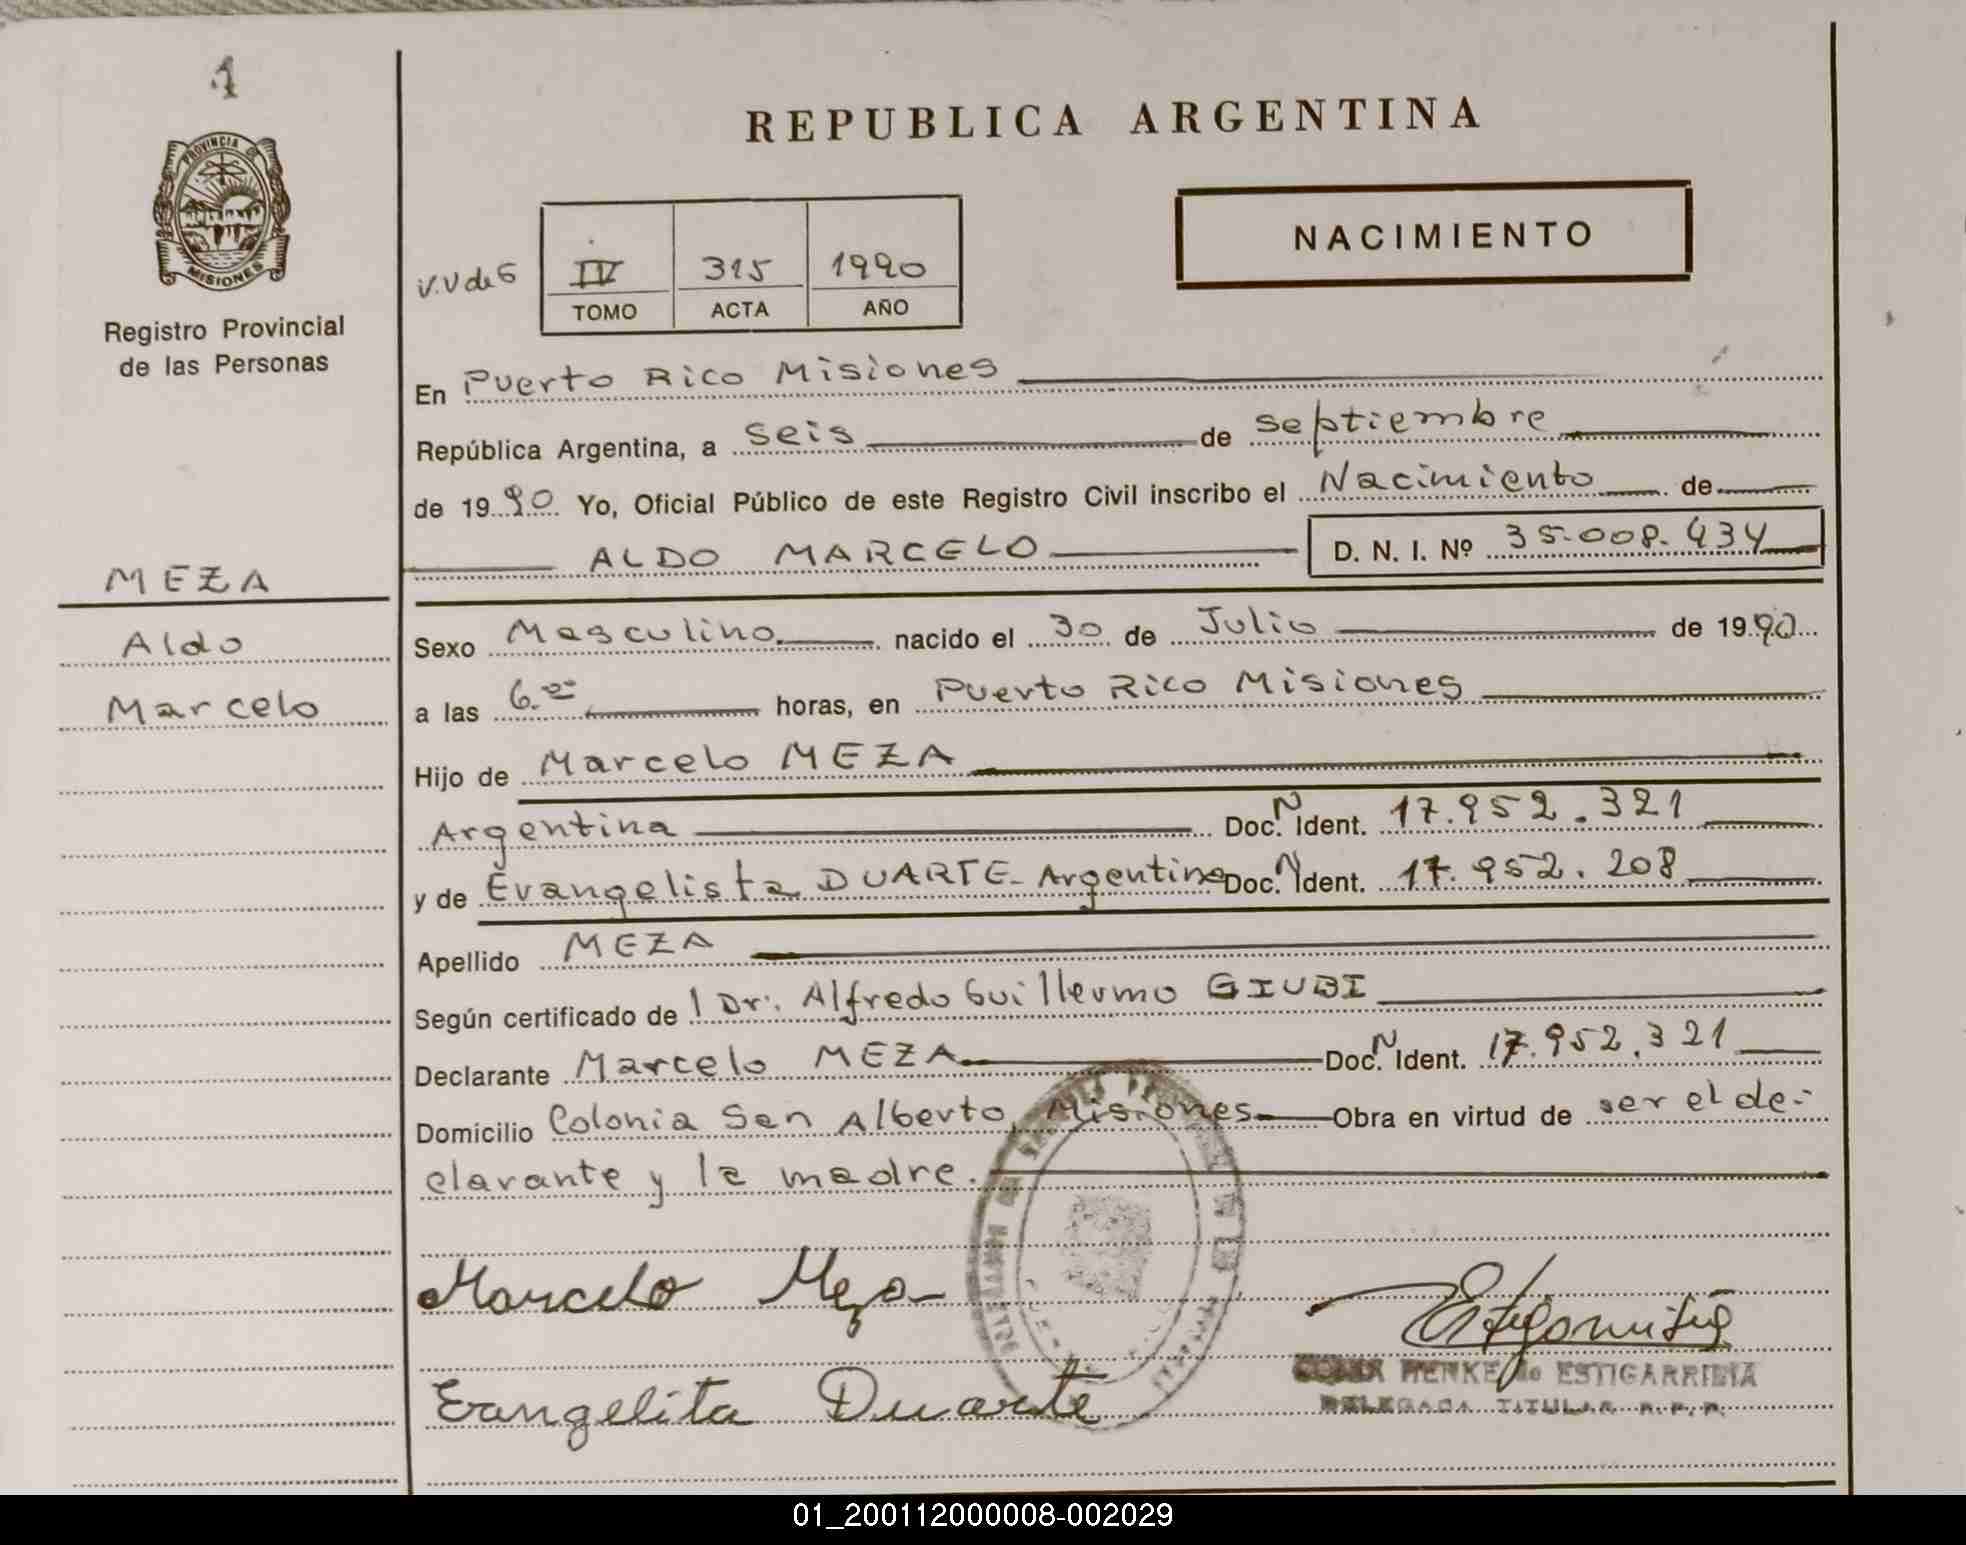 1
PROVINCIA DE
MISIONES
Registro Provincial
de las Personas
MEZA
Aldo
Marcelo
REPUBLICA ARGENTINA
NACIMIENTO
IV 315 1990
TOMO ACTA AÑO
En Puerto Rico Misiones
República Argentina, a seis de septiembre
de 1990 Yo, Oficial Público de este Registro Civil inscribo el Nacimiento de
ALDO MARCELO D. N. I. Nº 35.008.434
Sexo Masculino nacido el 30 de Julio de 1990
a las 6.00 horas, en Puerto Rico Misiones
Hijo de Marcelo MEZA
Argentina Doc. N Ident. 17.952.321
y de Evangelista DUARTE - Argentina Doc. N Ident. 17.952.208
Apellido MEZA
Según certificado de l Dr. Alfredo Guillermo GIUBI
Declarante Marcelo MEZA Doc. N Ident. 17.952.321
Domicilio Colonia San Alberto, Misiones Obra en virtud de ser el de-
clarante y la madre.
Marcelo Meza
Evangelita Duarte
HENKE de ESTIGARRIBIA
DELEGADA TITULAR R.P.P.
01_200112000008-002029